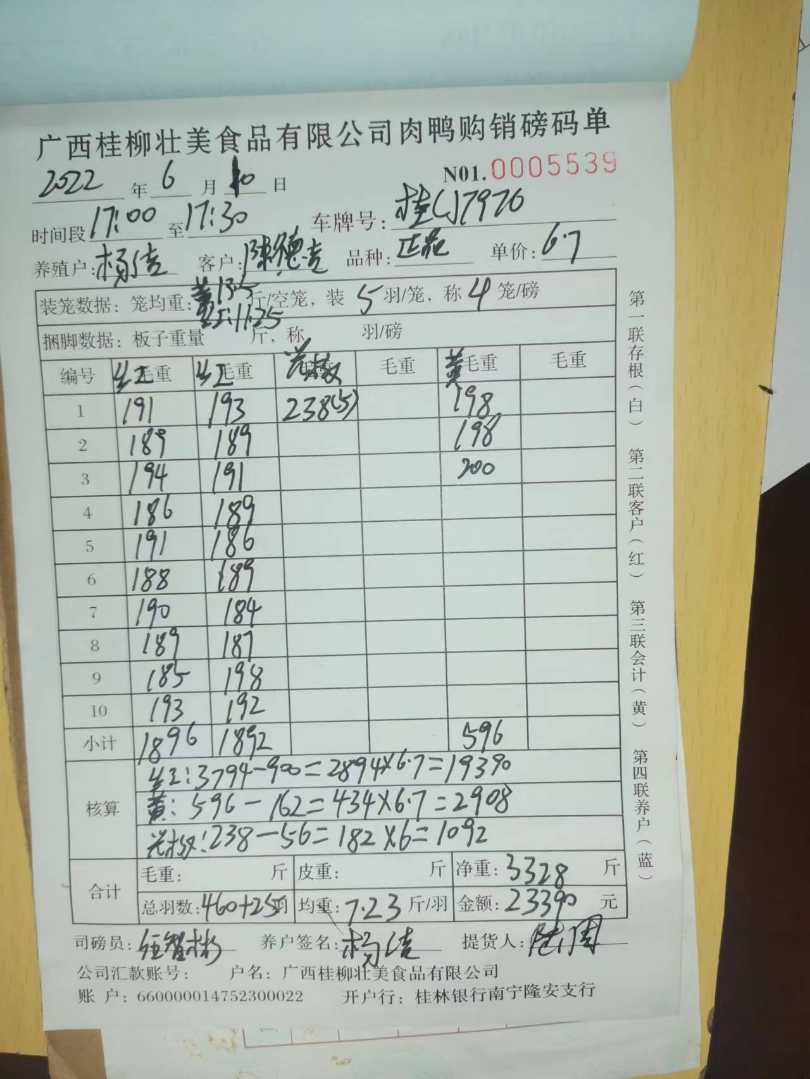 广西桂柳壮美食品有限公司肉鸭购销磅码单
2022 年 6 月 10 日 N01.0005539
时间段 17:00 至 17:30 车牌号: 桂 7976
养殖户: 杨 客户: 陈德 品种: 正品 单价: 6.7
装笼数据: 笼均重: 黄13.5 红11.25 斤/空笼, 装 5 羽/笼, 称 4 笼/磅
捆脚数据: 板子重量 斤, 称 羽/磅
编号 红 毛重 红 毛重 毛重 黄 毛重 毛重
1 191 193 238(5) 198
2 189 189 198
3 194 191 200
4 186 189
5 191 186
6 188 189
7 190 184
8 189 187
9 185 198
10 193 192
小计 1896 1892 596
核算
红: 3794-900=2894×6.7=19390
黄: 596-162=434×6.7=2908
238-56=182×6=1092
合计
毛重: 斤 皮重: 斤 净重: 3328 斤
总羽数: 460+25羽 均重: 7.23 斤/羽 金额: 23390 元
司磅员: 养户签名: 杨 提货人: 周
公司汇款账号: 户名: 广西桂柳壮美食品有限公司
账 户: 660000014752300022 开户行: 桂林银行南宁隆安支行
第一联存根(白) 第二联客户(红) 第三联会计(黄) 第四联养户(蓝)